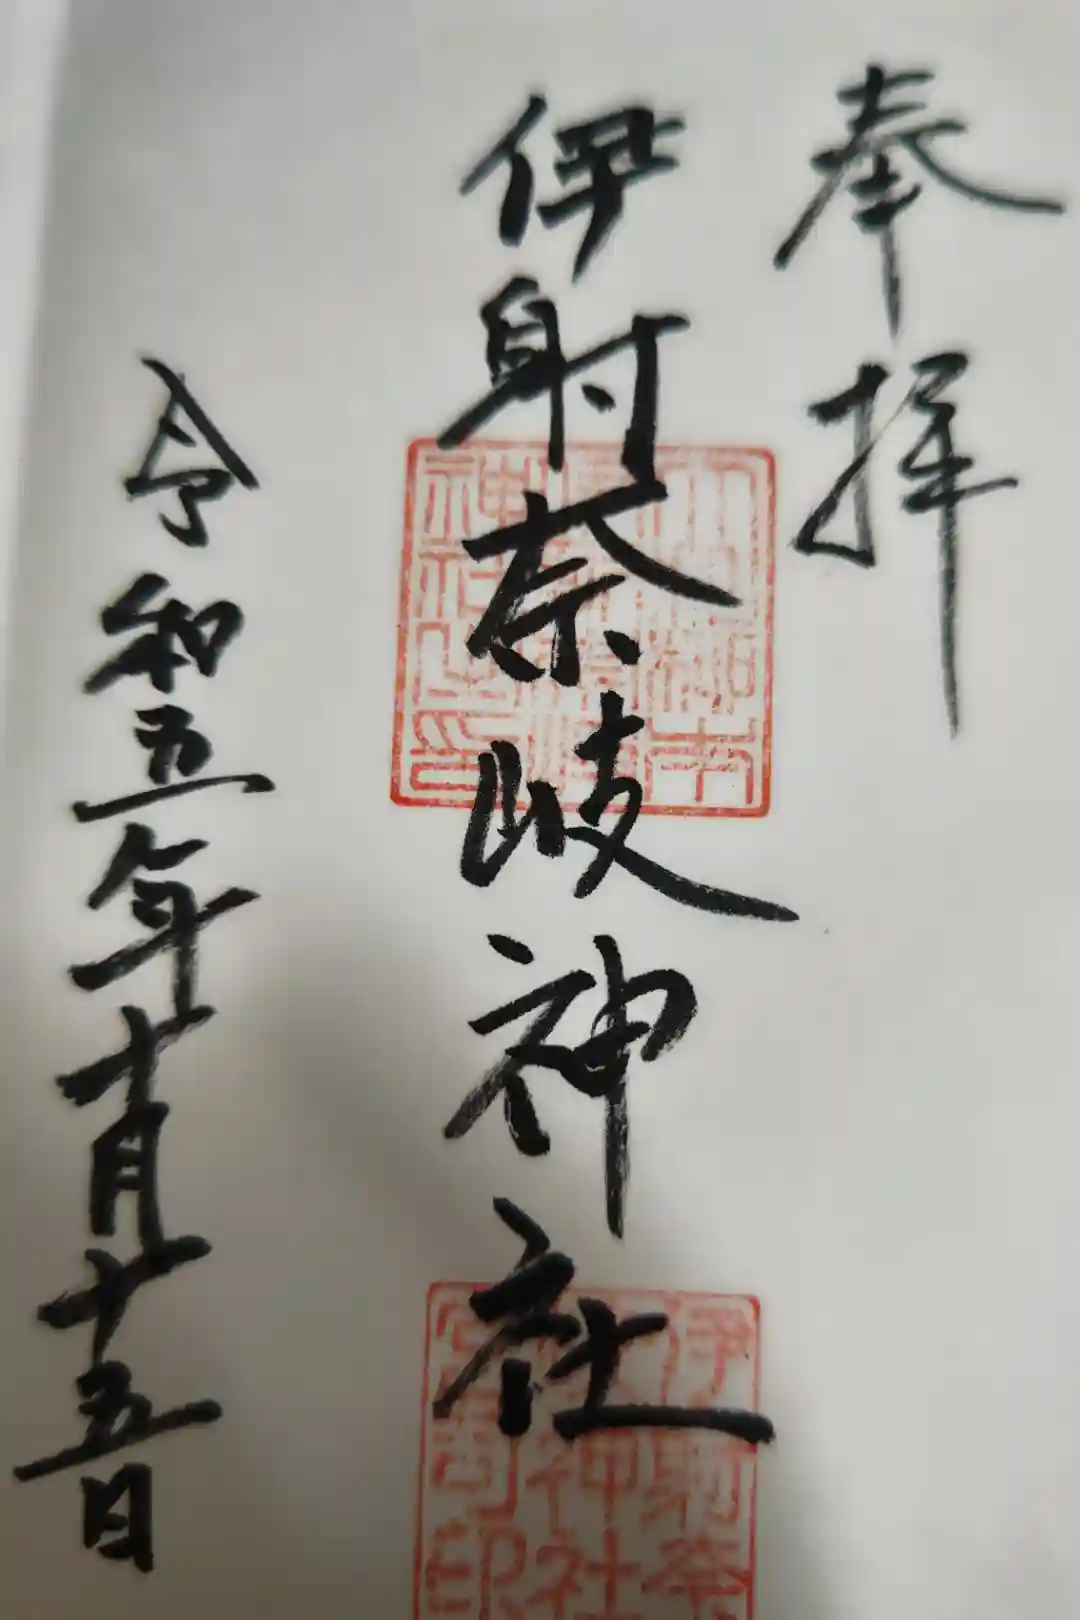 奉拝
伊射奈岐神社
令和五年十月十五日
伊射奈
神社
宮司印